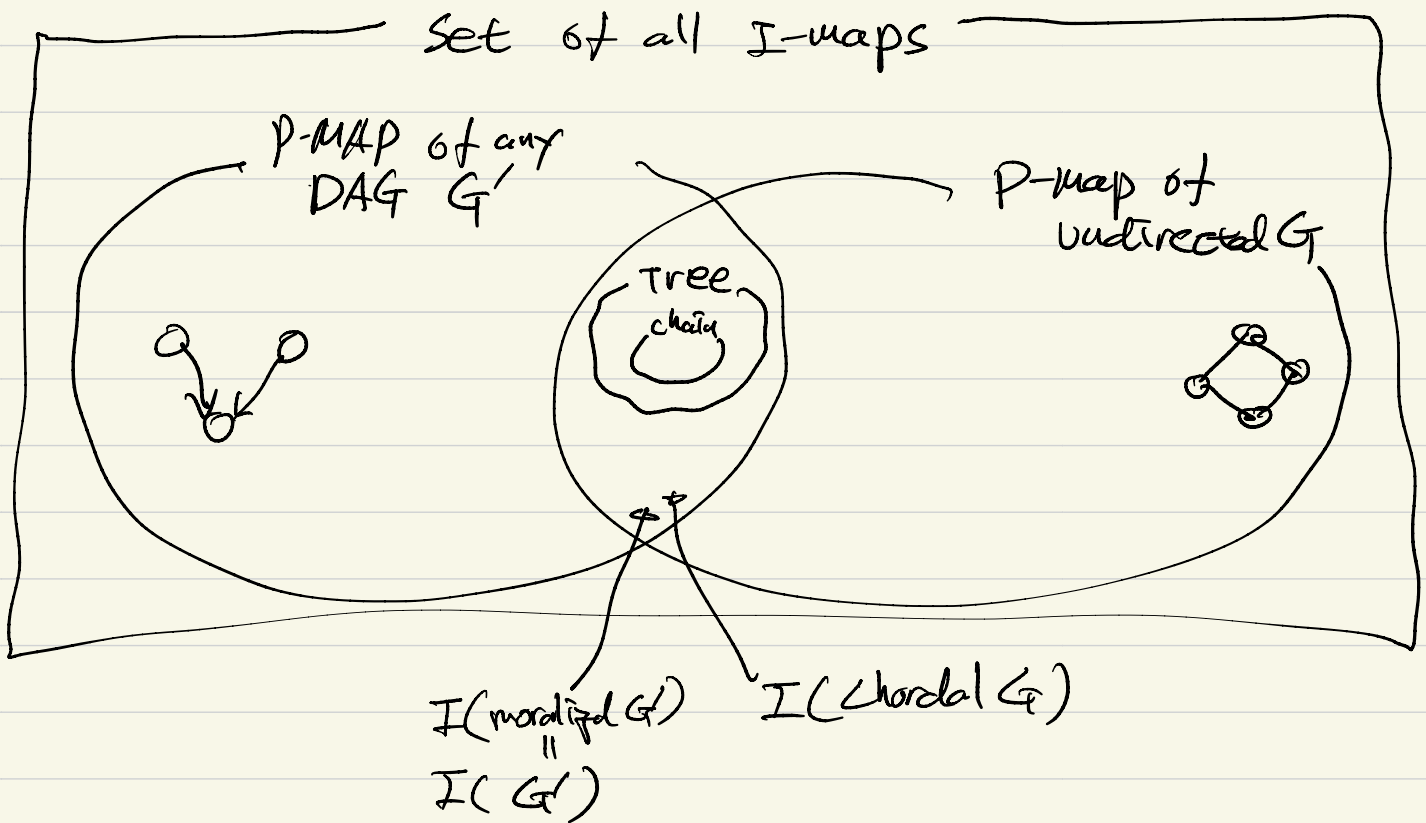 Set of all I-maps
P-MAP of any
DAG G'
P-map of
undirected G
Tree
chain
I(moralized G')
=
I(G')
I(chordal G)